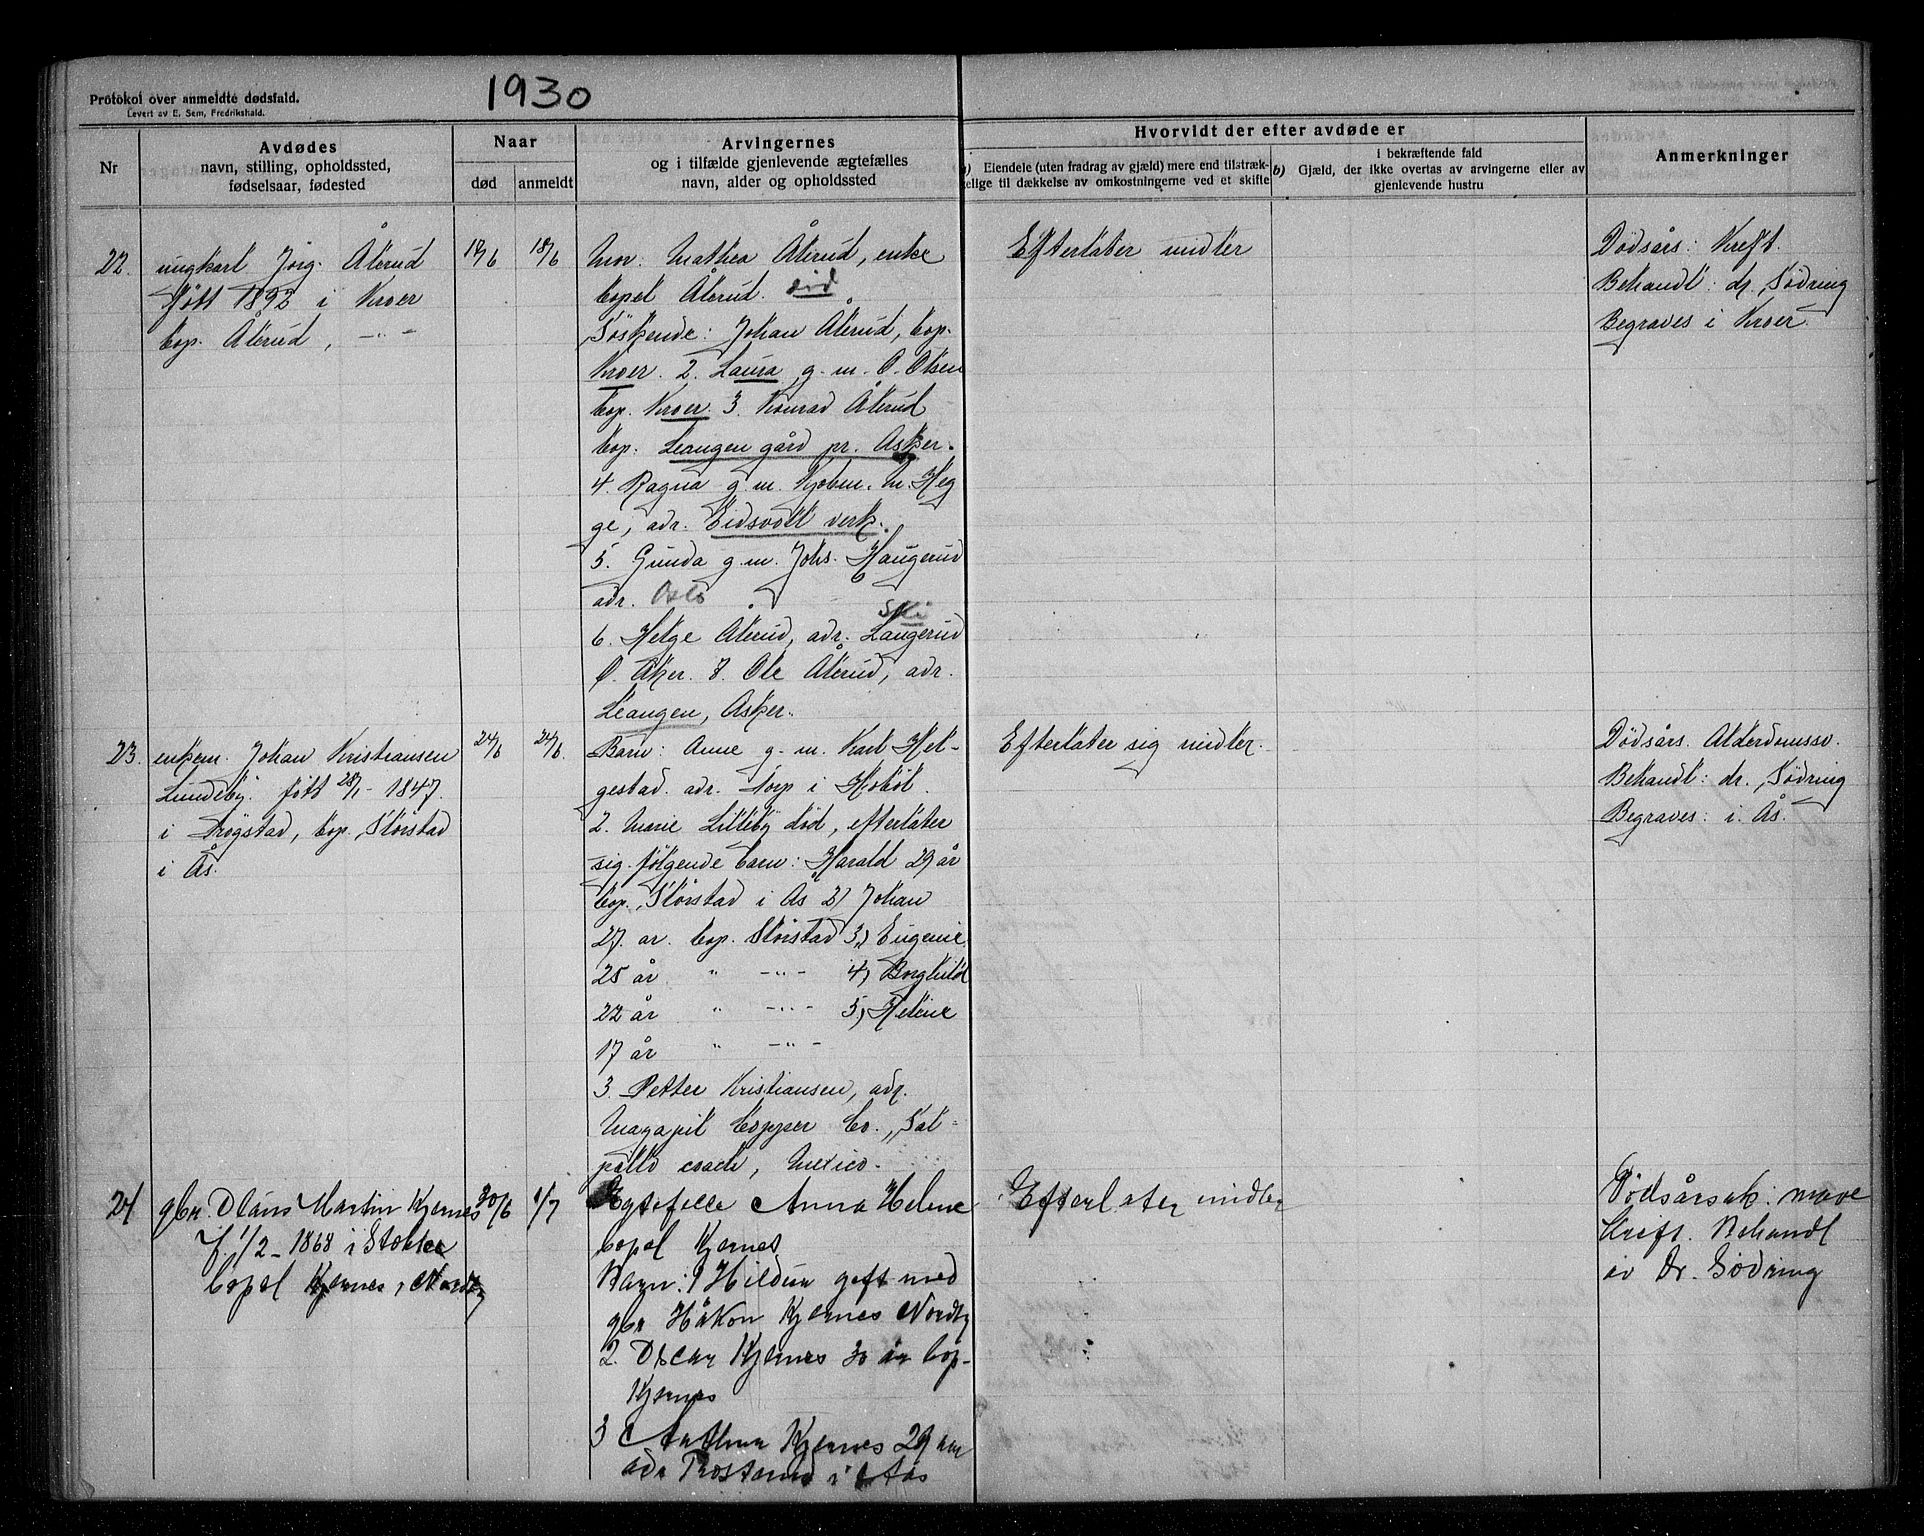 1930
Protokol over anmeldte dødsfald.
Levert av E. Sem, Fredrikshald.
Nr
Avdødes
navn, stilling, opholdssted,
fødselsaar, fødested
Naar
død
anmeldt
Arvingernes
og i tilfælde gjenlevende ægtefælles
navn, alder og opholdssted
Hvorvidt der efter avdøde er
Eiendele (uten fradrag av gjæld) mere end tilstræk-
kelige til dækkelse av omkostningerne ved et skifte
b) i bekræftende fald
Gjæld, der ikke overtas av arvingerne eller av
gjenlevende hustru
Anmerkninger
22.
ungkarl Jörg. Åkerud
født 1892 i Kroer
bop. Åkerud, -"-
18/6
Mor. Mathea Åkerud, enke
bopel Åkerud.
Søskende: Johan Åkerud, bop.
Kroer. 2. Laura g. m. O. Olsen
bop. Kroer. 3. Konrad Åkerud
bop. Leangen gård pr. Asker.
4. Ragna g. m. Kjøbm. M. Heg
ge, adr. Eidsvoll verk.
5. Gunda g.m. Johs. Haugerud
adr. Oslo
Ski
6. Helge Åkerud, adr. Langerud
Ø. Aker. 7. Ole Åkerud, adr.
Leangen, Asker.
Efterlater midler
Dødsårs: Kreft.
Behandl: dr. Södring
Begraves i Kroer.
23.
enkem. Johan Kristiansen
Lundeby. født 28/1 - 1847.
i Trøgstad, bop. Storstad
i Ås.
24/6
24/6.
Barn: Anne g. m. Karl Hel-
gestad. adr. Torp i Hobøl.
2. Marie Lilleby død, efterlater
sig følgende barn: Harald 29 år
bop. Storstad i Ås 2) Johan
27. år. bop. Storstad 3.) Eugenie
25 år " -"- 4) Borghild
22 år " -"- 5.) Helene
17 år " -"-
3. Petter Kristiansen, adr.
Copper Co.
Mexico.
Efterlater sig midler.
Dødsårs. Alderdomssv.
Behandl: dr. Södring
Begraves: i Ås.
24
gbr. Hans Martin Kjernes
f. 1/2 - 1868 i Stokke
bopel Kjernes, Nordby
30/6
1/7
Egtefelle Anna Helene
bopel Kjernes
Barn: 1 Hildur gift med
gbr Håkon Kjernes Nordby
2. Oscar Kjernes 30 år bop-
Kjernes
3 Kjernes 29 aar
adr i Aas
Efterlater midler
Dødsårsak: mave
kreft. Behandl
av Dr. Södring